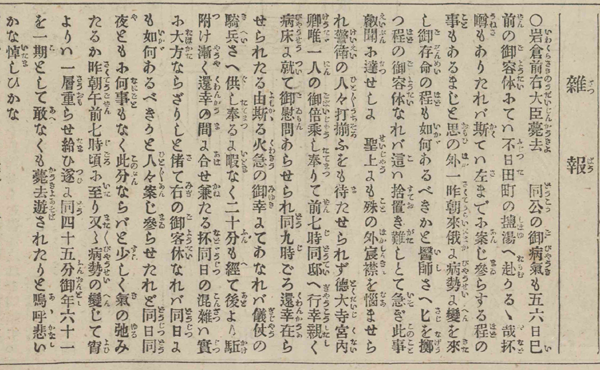 雜報
○岩倉前右大臣薨去　同公の御病氣も五六日已
前の御容体にてハ不日田町の鹽湯へ赴かる哉抔
噂もありたれバ斯てハ左までお案じ參らする程の
事もあるまじと思の外一昨朝來俄に病勢に變を來
し御存命の程も如何あるべきかと醫師さへ匕を擲
つ程の御容体なれバ這ハ捨置き難しとて急ぎ此事
叡聞に達せしに　聖上にも殊の外宸襟を惱ませら
れ警衛の人々打揃ふをも待たせられず德大寺宮内
卿唯一人の御倍乘し奉りて前七時同邸へ行幸親く
病床に就て御慰問あらせられ同九時ごろ還幸在ら
せられたる由斯る火急の御幸にてあれバ儀仗の
騎兵さへ供し奉るに暇なく二十分も經て後より駈
附け漸く還幸の間に合せ兼たる抔同日の混雜ハ實
に大方ならざりしと擔て右の御容体なれバ同日に
も如何あるべきかと人々案じ參らせたれど同日同
夜とも何事もなく此分ならバと少しく氣の弛み
たるか昨朝午前七時頃に至り又々病勢の變じて宵
よりハ一層重らせ給ひ遂に同四十五分御年六十一
を一期として敢なくも薨去遊されたりと嗚呼悲い
かな悼しひかな